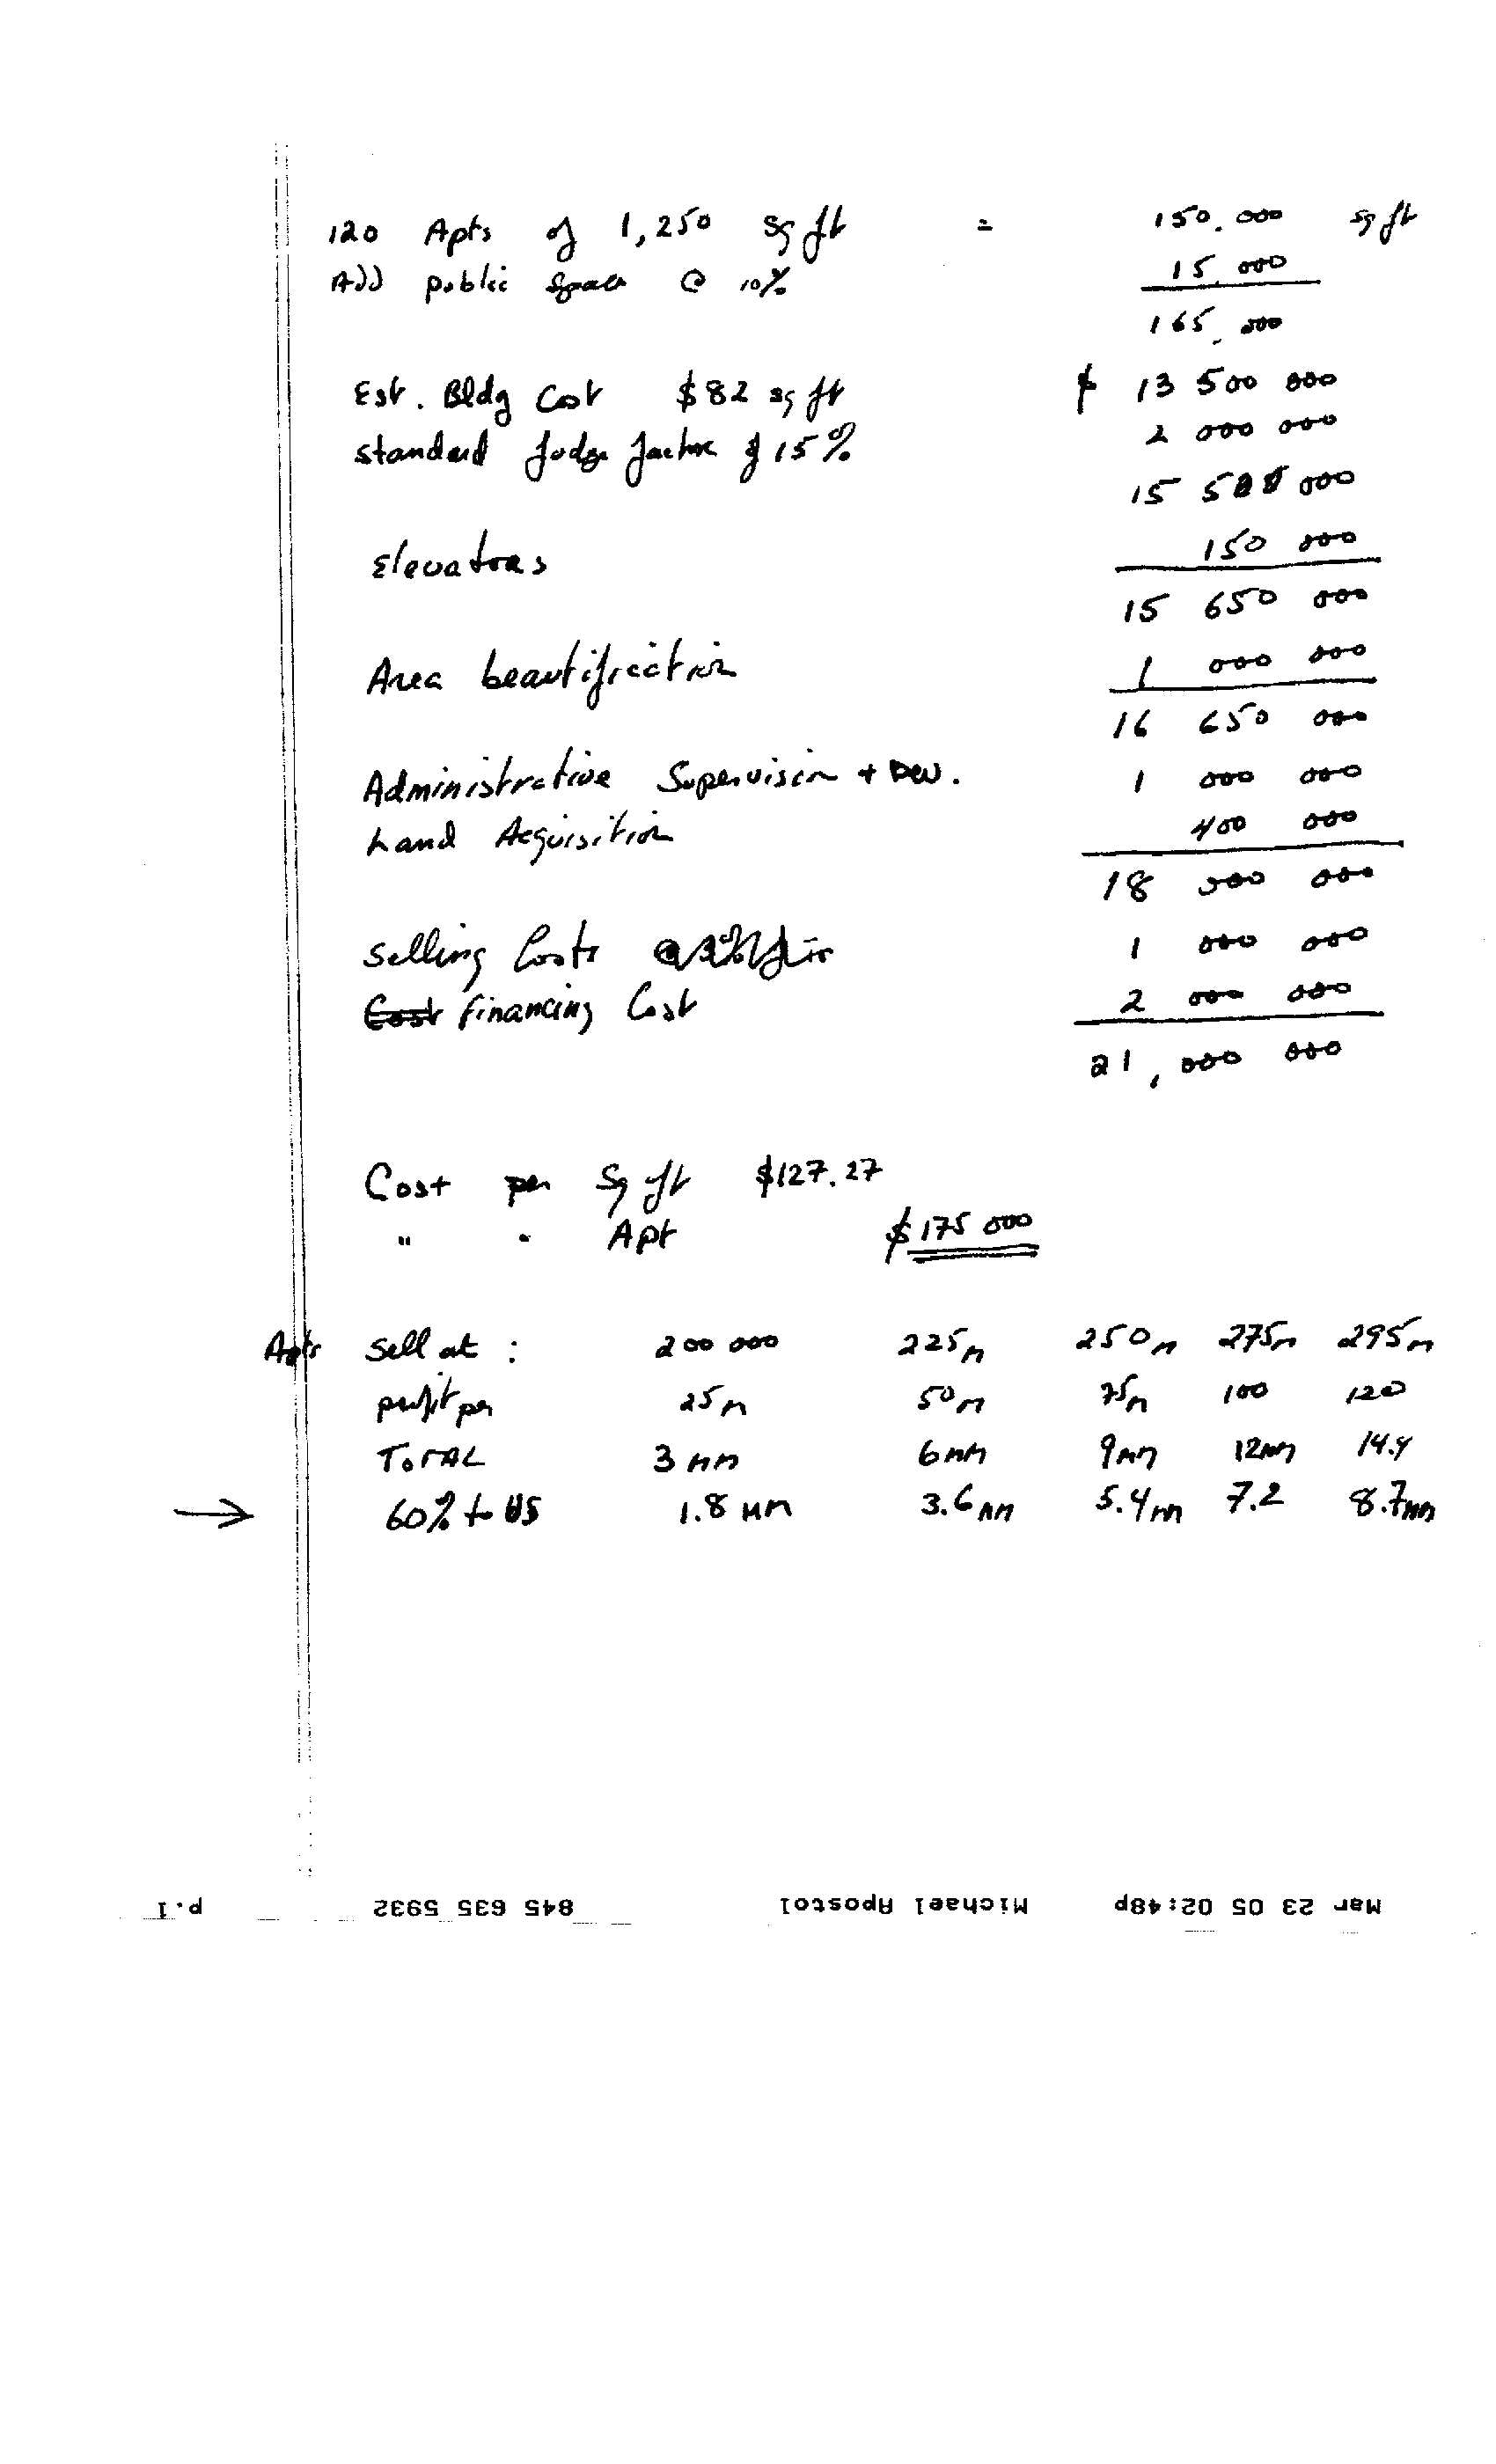 120 Apts of 1,250 sq ft = 150.000 sq ft
Add public space @ 10% 15.000
165.000
Est. Bldg Cost $82 sq ft $ 13 500 000
standard fudge factor of 15% 2 000 000
15 500 000
Elevators 150 000
15 650 000
Area beautification 1 000 000
16 650 000
Administrative Supervision + Dev. 1 000 000
Land Acquisition 400 000
18 000 000
Selling Costs 1 000 000
Cost Financing Cost 2 000 000
21,000 000
Cost per Sq ft $127.27
" " Apt $175 000
Apts Sell at : 200 000 225m 250m 275m 295m
profit per 25m 50m 75m 100 120
TOTAL 3mm 6mm 9mm 12mm 14.4
→ 60% to US 1.8mm 3.6mm 5.4mm 7.2 8.7mm
Mar 23 05 02:48p Michael Apostol 845 635 5932 p.1